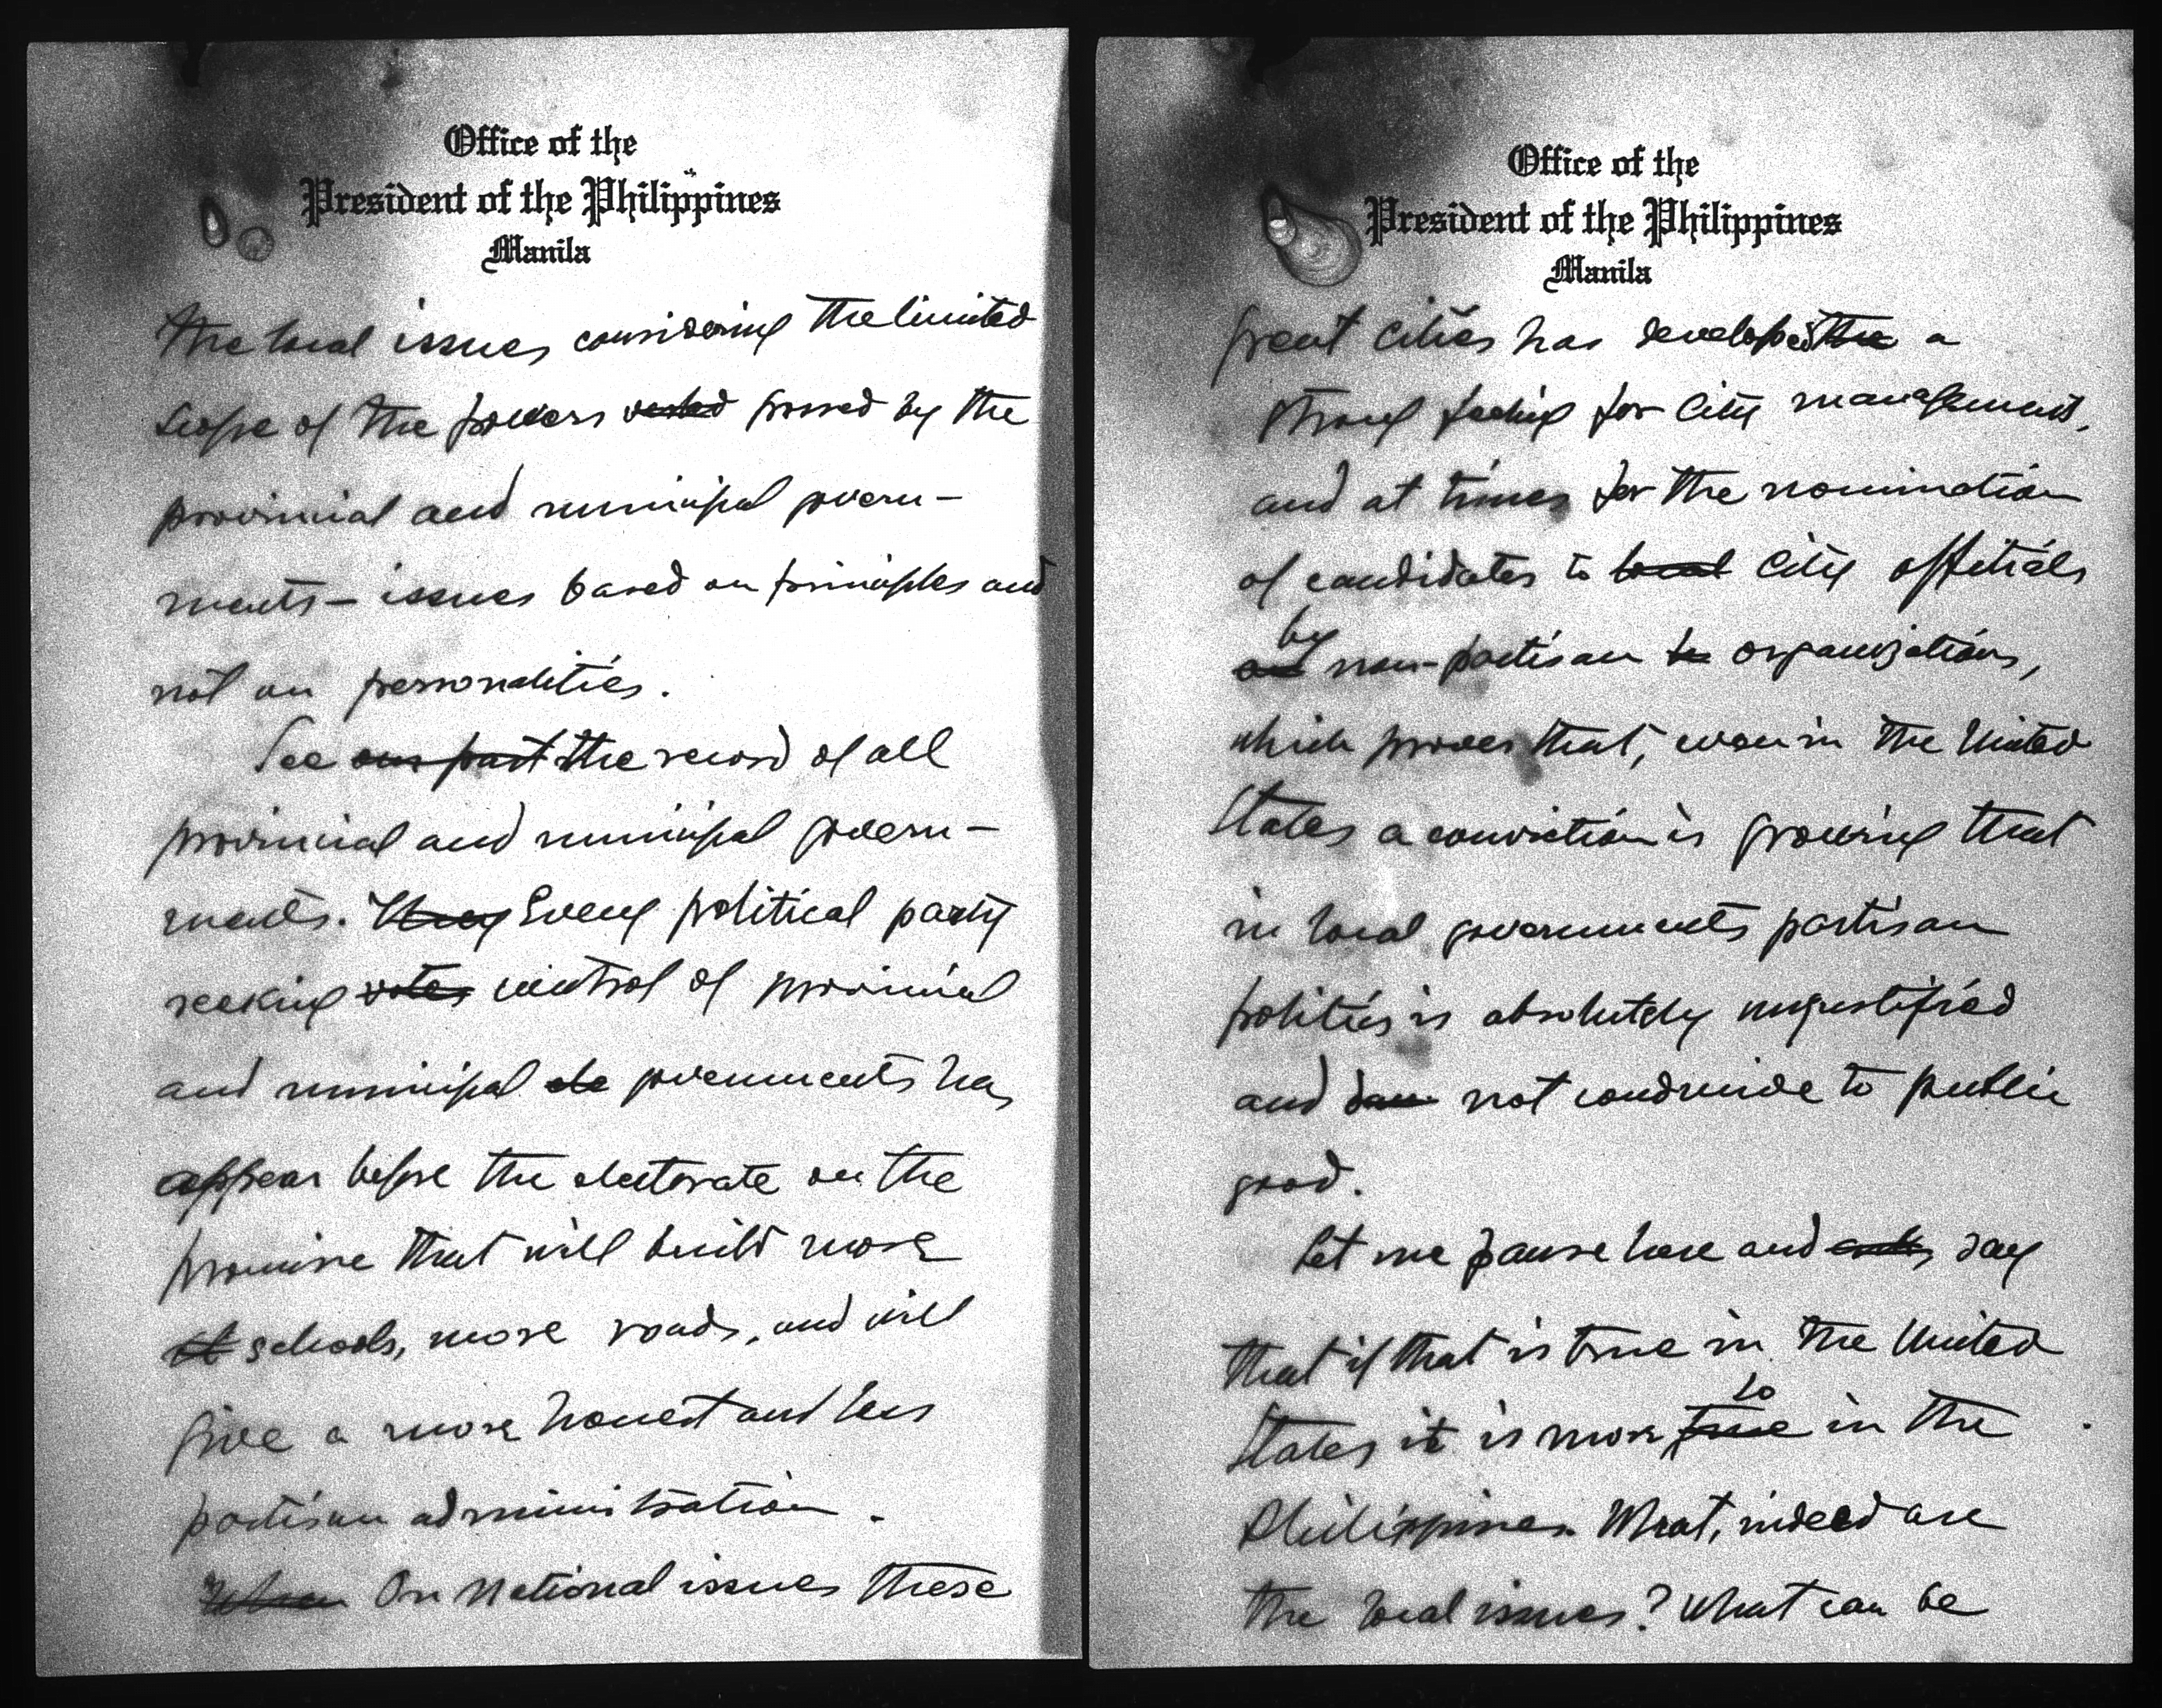 Office of the
President of the Philippines
Manila
the local issues considering the limited
scope of the powers vested possed by the
provincial and municipal govern-
ments - issues based on principles and
not on personalities.
See our past the record of all
provincial and municipal govern-
ments. They Every political party
seeking votes control of provincial
and municipal ele governments has
appear before the electorate on the
promise that will build more
schools, more roads, and will
give a more honest and less
partisan administration.
When On National issues these
Office of the
President of the Philippines
Manila
great cities has developed the a
strong feeling for city management,
and at times for the nomination
of candidates to local city officials
by
and non-partisan organizations,
which proves that, even in the United
States a conviction is growing that
in local governments partisan
politics is absolutely unjustified
and not conducive to public
good.
Let me pause here and say
that if that is true in the United
so
States it is more true in the
Philippines. What, indeed are
the local issues? What can be